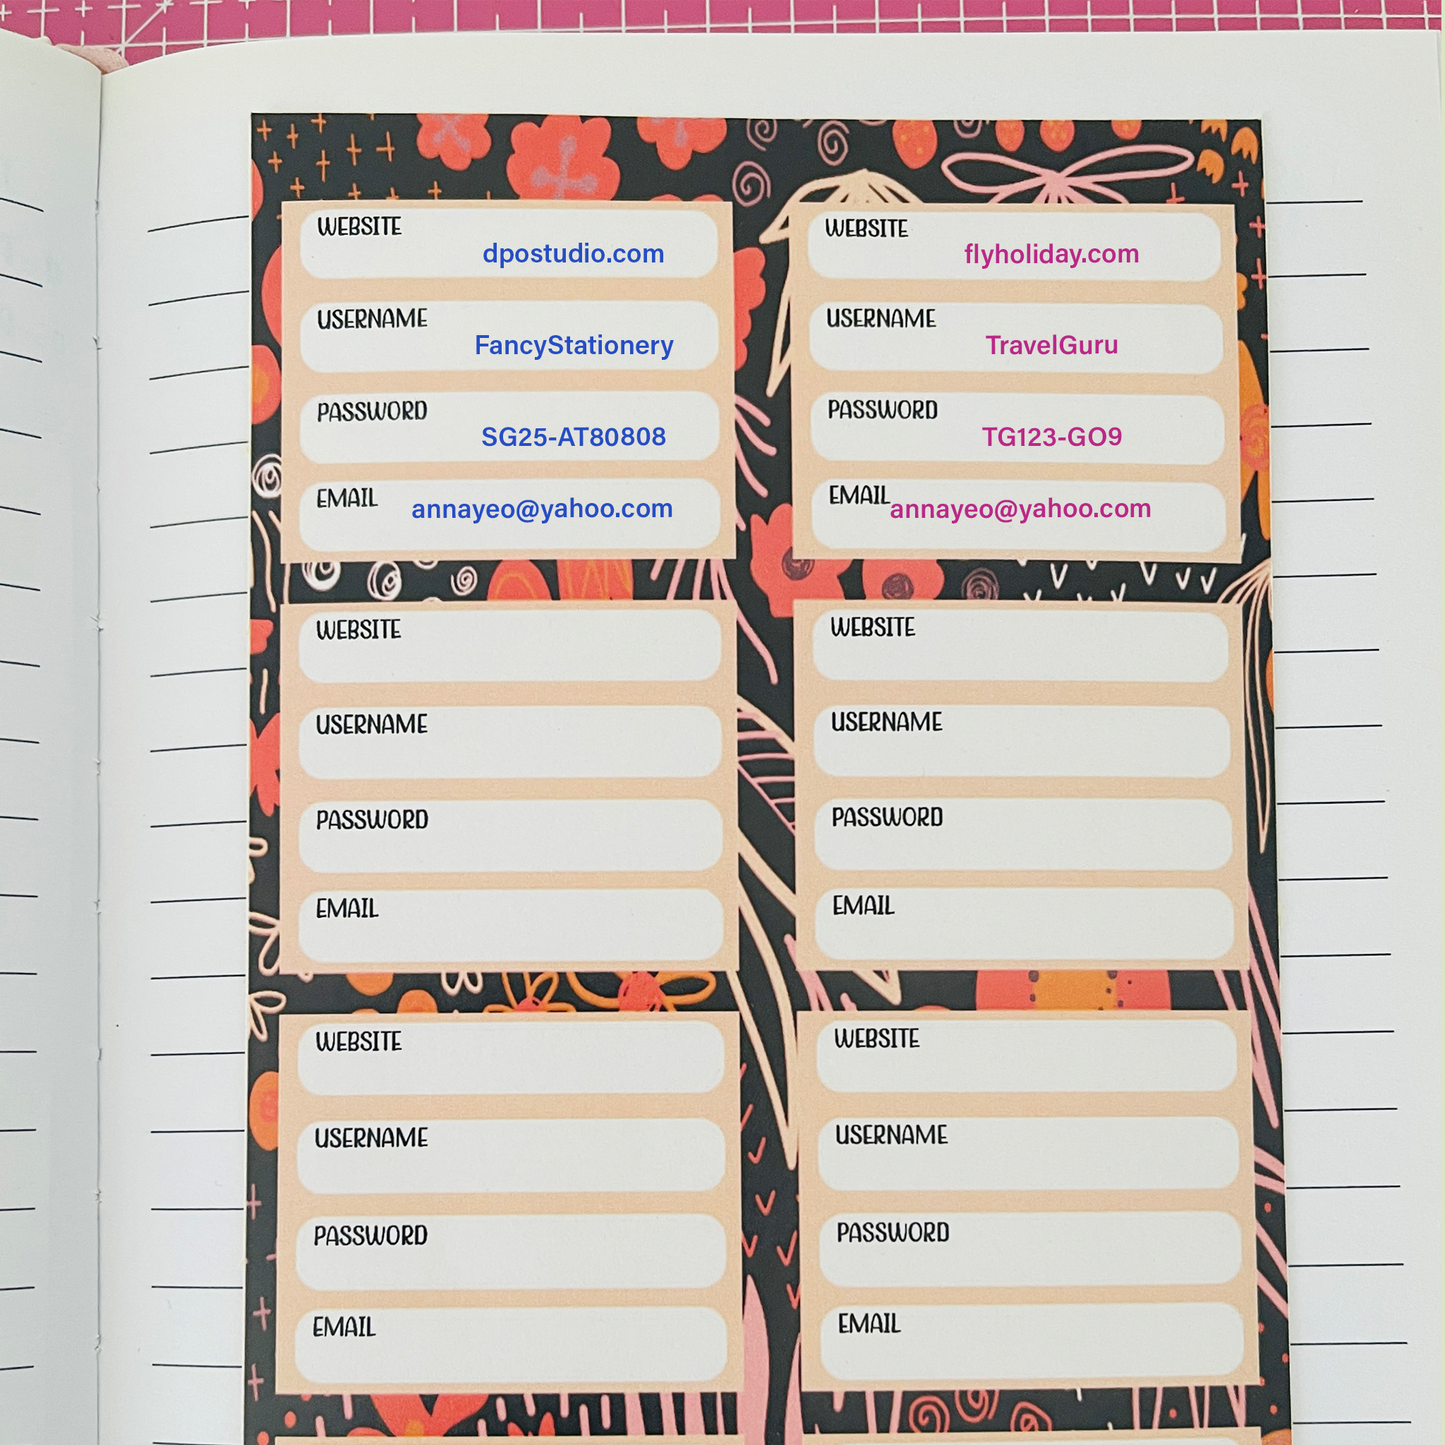 WEBSITE
dpostudio.com
USERNAME
FancyStationery
PASSWORD
SG25-AT80808
EMAIL
annayeo@yahoo.com
WEBSITE
flyholiday.com
USERNAME
TravelGuru
PASSWORD
TG123-GO9
EMAIL
annayeo@yahoo.com
WEBSITE
USERNAME
PASSWORD
EMAIL
WEBSITE
USERNAME
PASSWORD
EMAIL
WEBSITE
USERNAME
PASSWORD
EMAIL
WEBSITE
USERNAME
PASSWORD
EMAIL